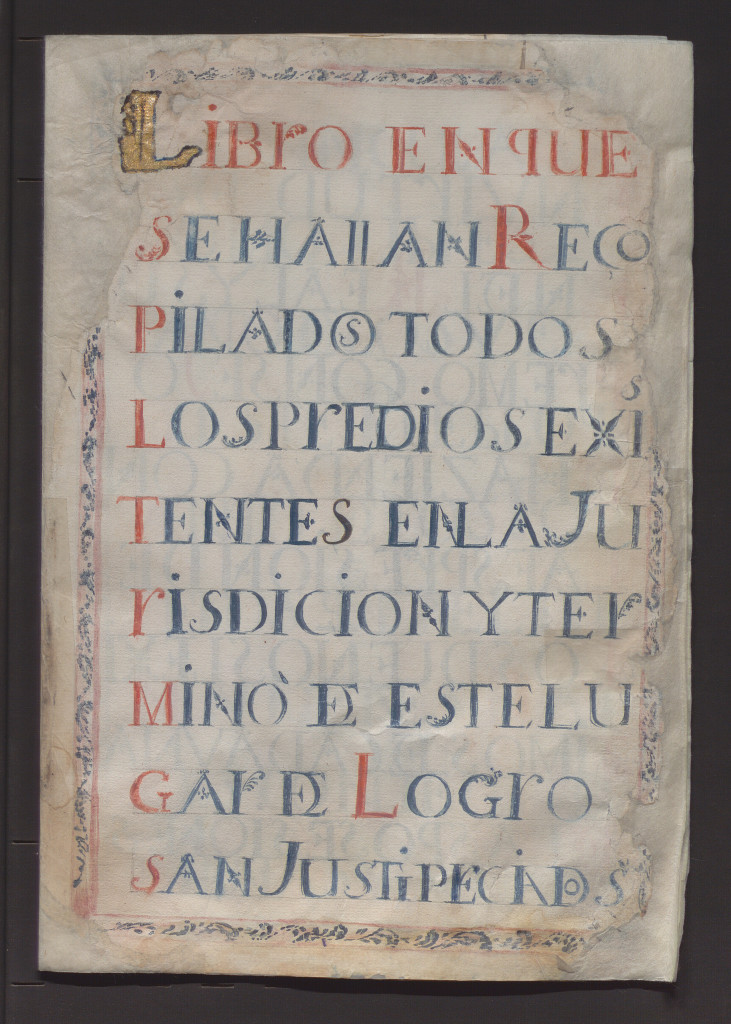 LIBrO ENQUE
SEHALLANREÇO
PILADOS TODOS
LOSPrEDIOSEXIS
TENTES ENLAJU
rISDICIONYTEr
MINÒ DE ESTELU
GAr DE LOGrO
SANJUSTIPrECIADOS